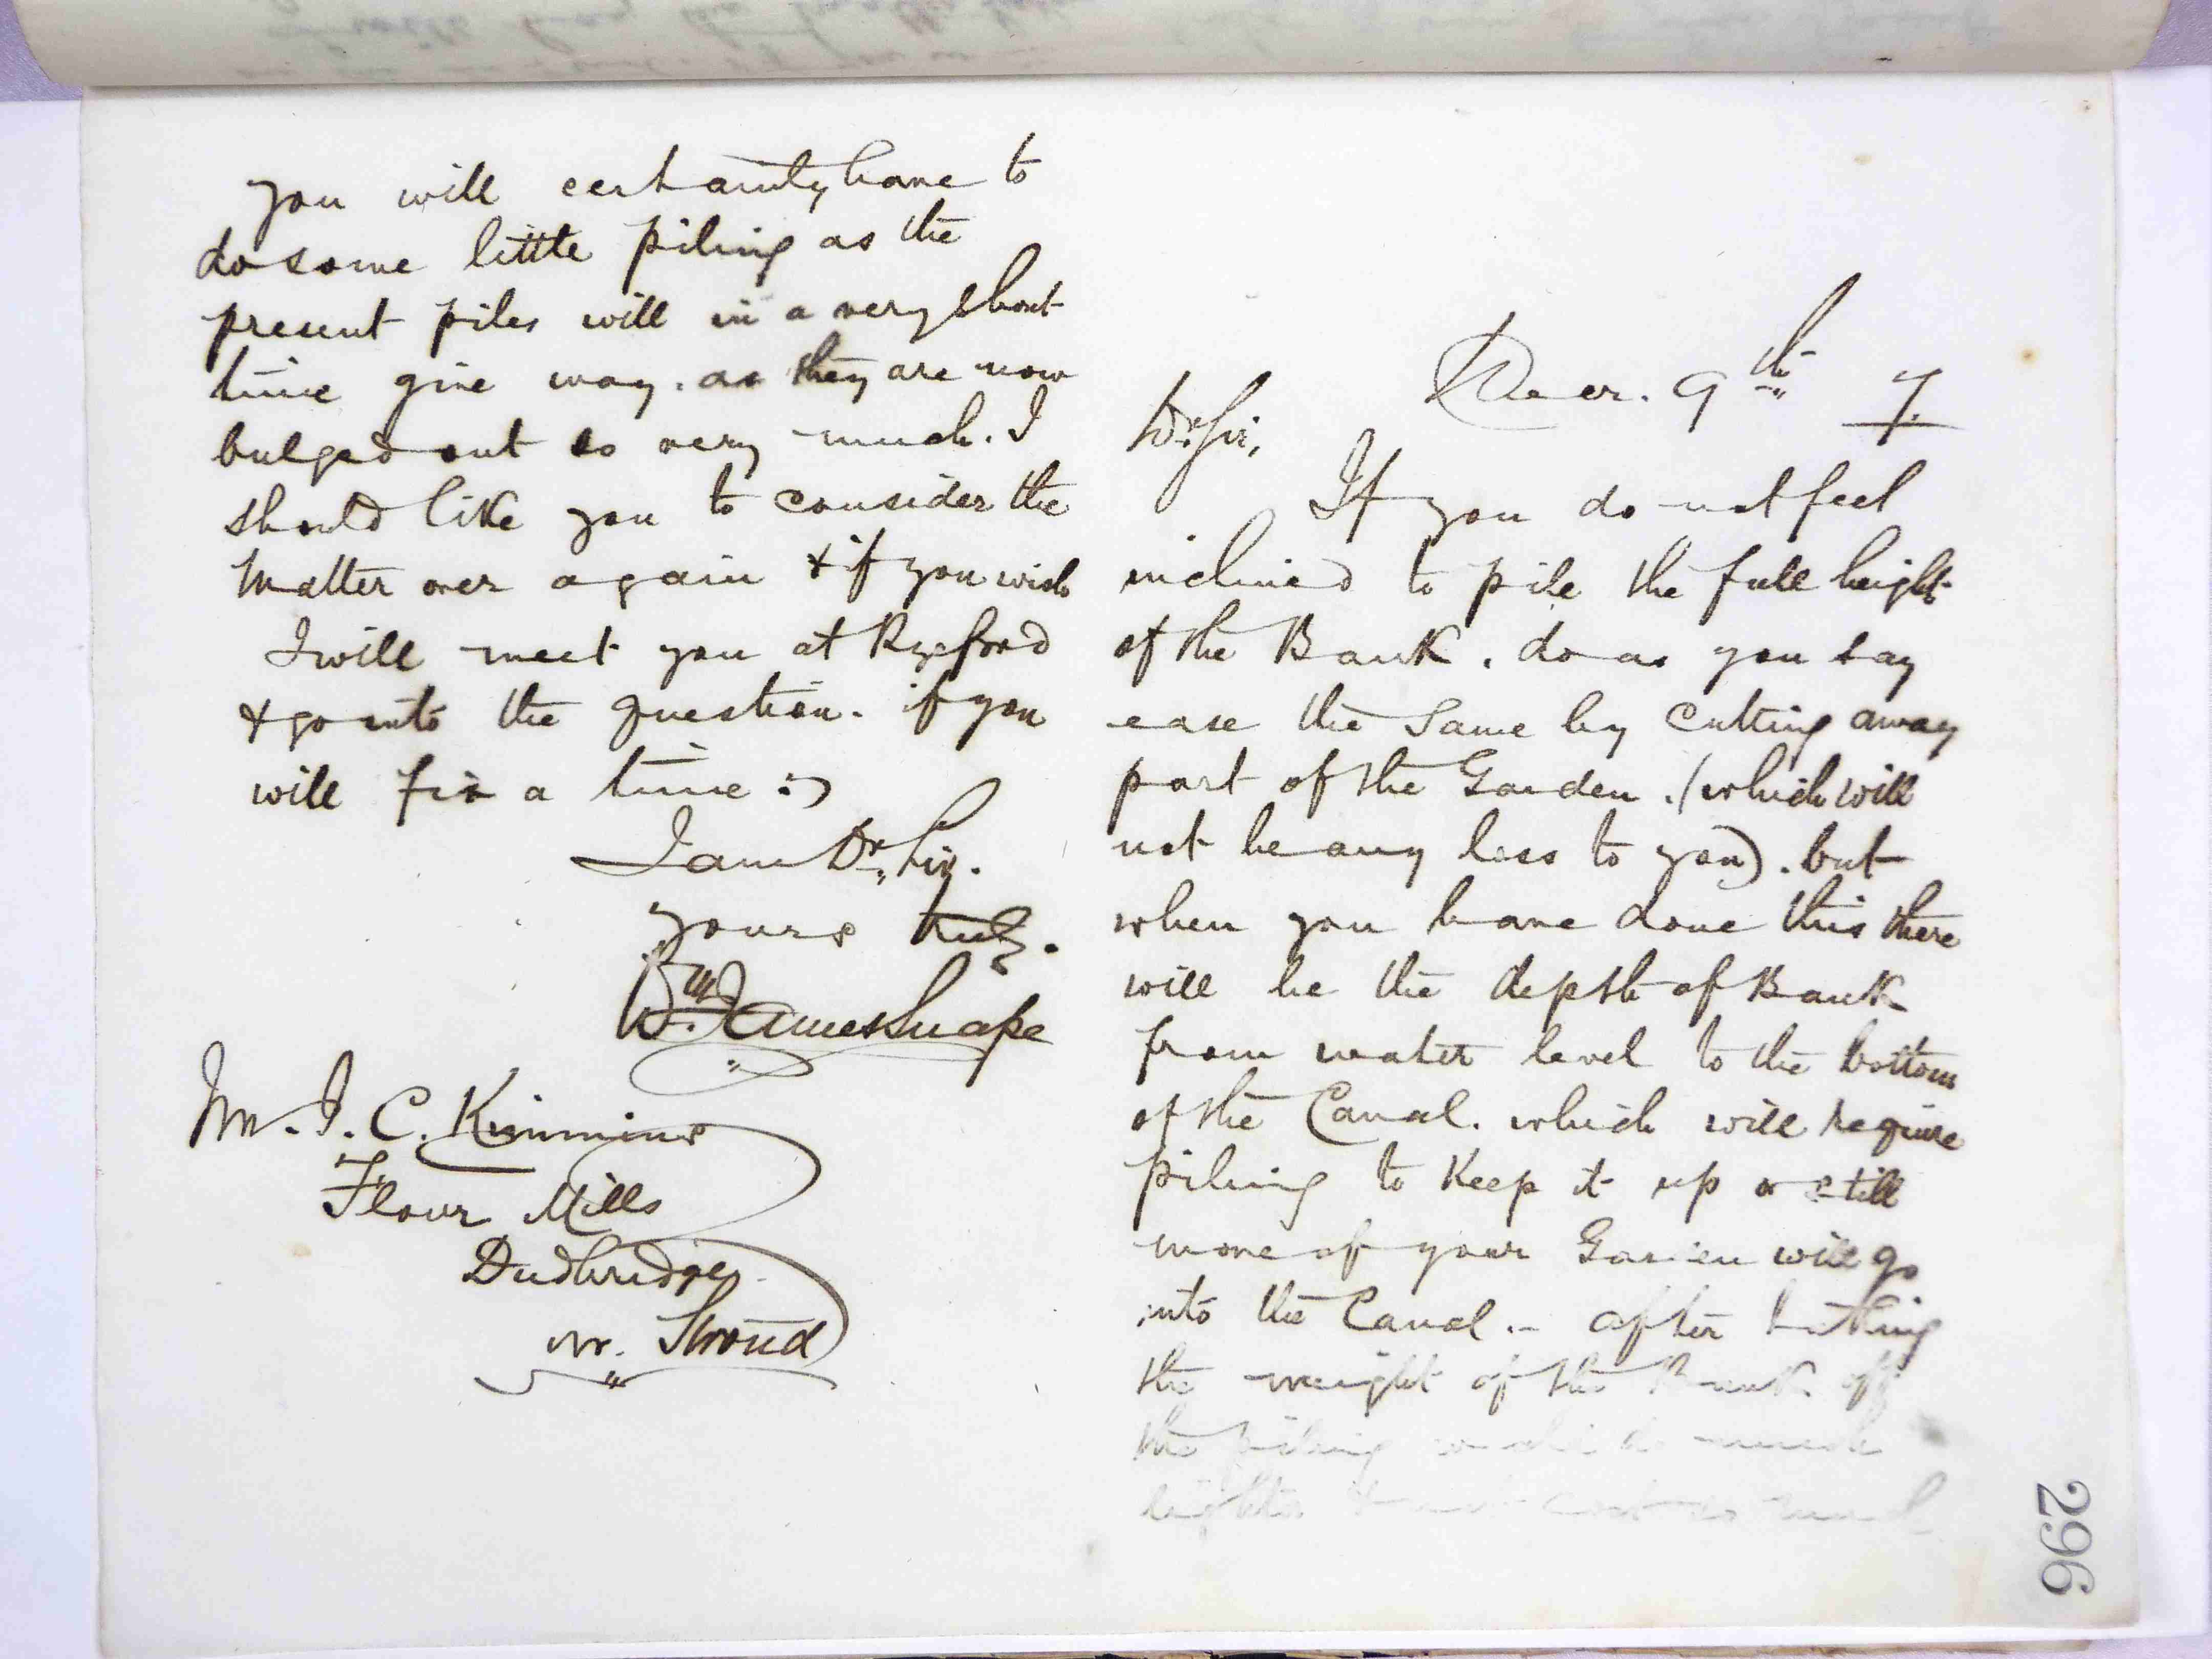 Decer. 9th 7.
Dr. Sir,
If you do not feel
inclined to pile the full height
of the Bank. do as you say
ease the same by cutting away
part of the Garden. (which will
not be any loss to you). but
when you have done this there
will be the depth of Bank
from water level to the bottom
of the Canal. which will require
piling to keep it up or still
more of your Garden will go
into the Canal. - after taking
the weight of the Bank off
the piling would be much
lighter & not cost so much
you will certainly have to
do some little piling as the
present piles will in a very short
time give way. as they are now
bulged out so very much. I
should like you to consider the
Matter over again & if you wish
I will meet you at Ryeford
& go into the question. if you
will fix a time :)
I am Dr. Sir.
yours truly.
Wm. James Snape
Mr. J. C. Kimmins
Flour Mills
Dudbridge
Nr. Stroud
296